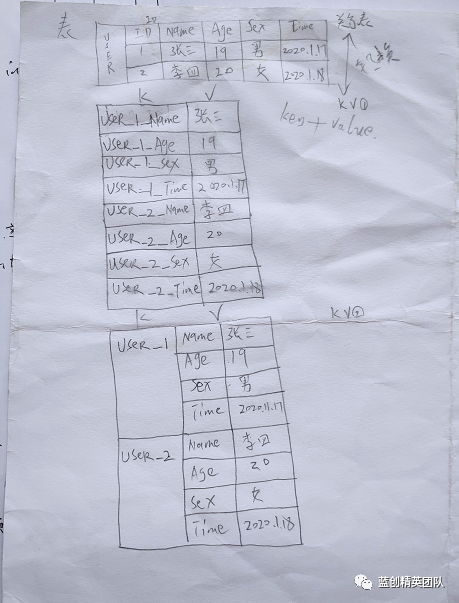 表
USER
ID Name Age Sex Time
1 张三 19 男 2020.1.17
2 李四 20 女 2020.1.18
KV①
key+value.
K V
USER_1_Name 张三
USER_1_Age 19
USER_1_Sex 男
USER_1_Time 2020.1.17
USER_2_Name 李四
USER_2_Age 20
USER_2_Sex 女
USER_2_Time 2020.1.18
K V
KV②
USER_1 Name 张三
Age 19
Sex 男
Time 2020.11.17
USER_2 Name 李四
Age 20
Sex 女
Time 2020.1.18
蓝创精英团队